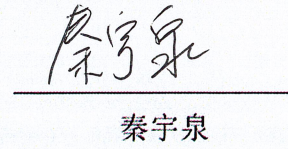 秦宇泉
秦宇泉